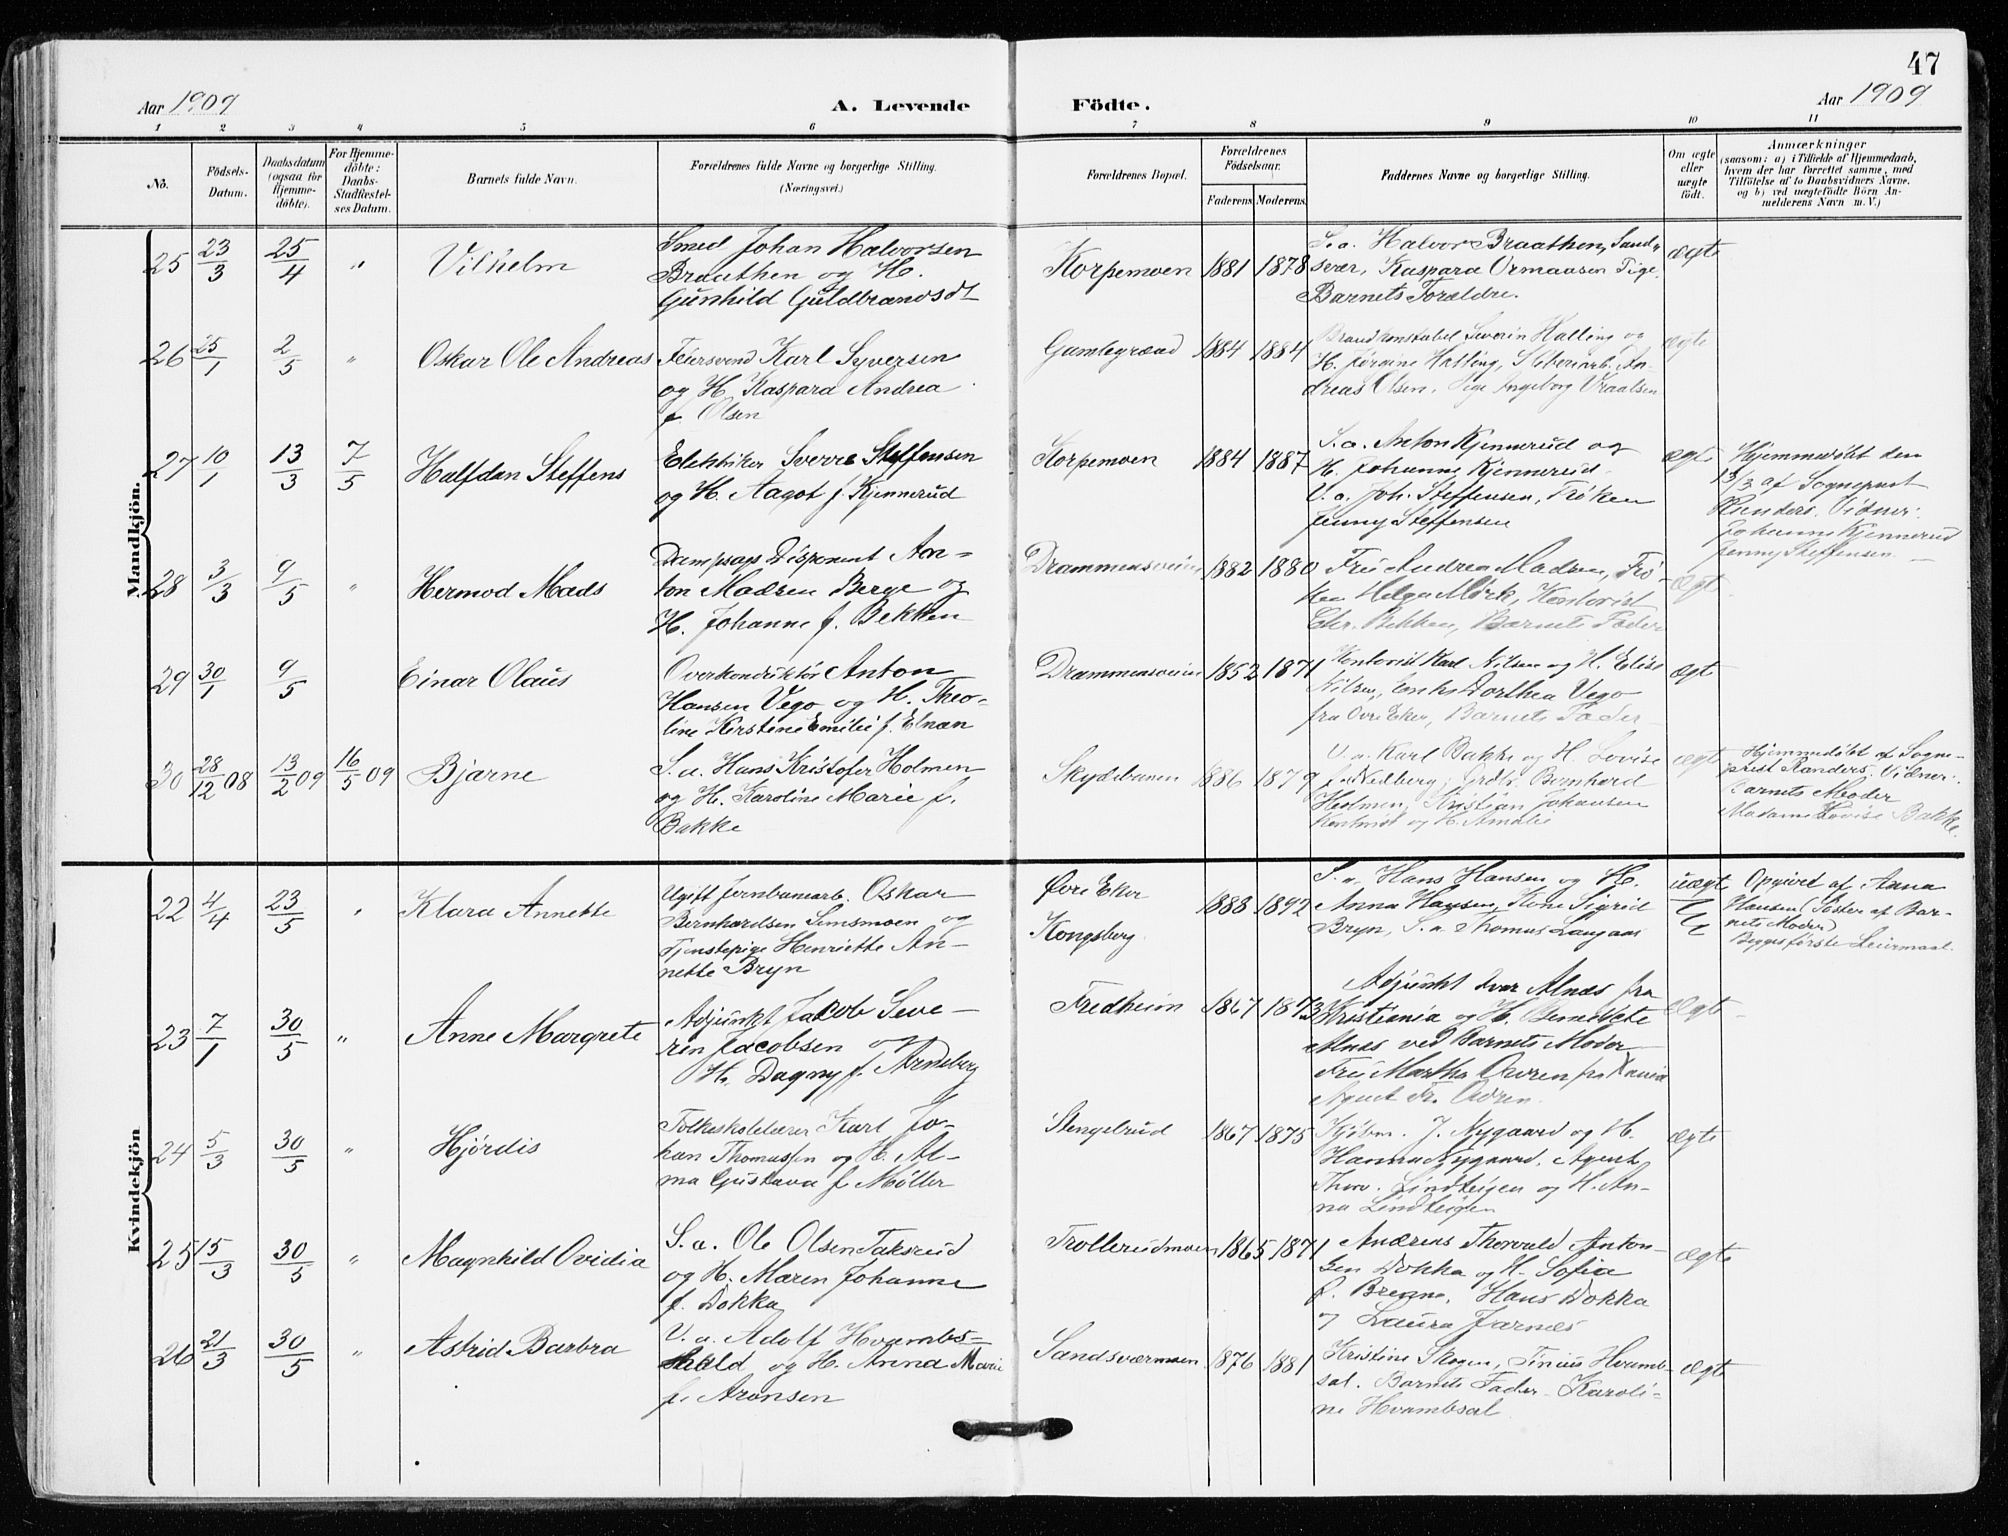 47
Aar 1909
A. Levende
Födte.
Aar 1909
1 2 3 4 5 6 7 8 9 10 11
No.
Födsels-
Datum.
Daabsdatum
(ogsaa for
Hjemme-
döbte).
For Hjemme-
döbte:
Daabs-
Stadfæstel-
ses Datum.
Barnets fulde Navn.
Forældrenes fulde Navne og borgerlige Stilling.
(Næringsvei.)
Forældrenes Bopæl.
Forældrenes
Födselsaar.
Faderens. Moderens.
Faddernes Navne og borgerlige Stilling.
Om ægte
eller
uægte
födt.
Anmærkninger
(saasom: a) i Tilfælde af Hjemmedaab,
hvem der har forrettet samme, med
Tilföielse af to Daabsvidners Navne,
og b) ved uægtefödte Börn An-
melderens Navn m. V.)
Mandkjön.
25 23/3 25/4 " Vilhelm
Smed Johan Halvorsen
Braathen og H.
Gunhild Guldbrandsdt
Korpemoen 1881 1878
S.a. Halvor Braathen, Sand-
svær, Kaspara Ormaasen Pige,
Barnets Forældre.
ægte
26 25/1 2/5 " Oskar Ole Andreas
Feiersvend Karl Syversen
og H. Kaspara Andrea
f. Olsen
Gamlegrænd 1884 1884
Brandkonstabel Severin Halling og
H. Jørgine Halling, Sliberiarb. An-
dreas Olsen, Pige Ingeborg Vraalsen
ægte
27 10/1 13/3 7/5 Halfdan Steffens
Elektriker Sverre Steffensen
og H. Aagot f. Kjennerud
Korpemoen 1884 1887
S.a. Anton Kjennerud og
H. Johanne Kjennerud.
V.a. Joh. Steffensen, Frøken
Jenny Steffensen
ægte
Hjemmedøbt den
13/3 af Sogneprest
Randers. Vidner:
Johanne Kjennerud
Jenny Steffensen
28 3/3 9/5 " Hermod Mads
Dampsags Disponent An-
ton Madsen Berge og
H. Johanne f. Bekken
Drammensveien 1882 1880
Fru Andrea Madsen, Frø-
ken Helga Mørk, Kontorist
Chr. Bekken, Barnets Fader
ægte
29 30/1 9/5 Einar Olaus
Overkonduktør Anton
Hansen Vego og H. Theo-
line Kirstine Emilie f. Elnan
Drammensveien 1852 1871
Kontorist Karl Nilsen og H. Elise
Nilsen, Enke Dorthea Vego
fra Øvre Eker, Barnets Fader
ægt
30 28/12 08 13/2 09 16/5 09 Bjarne
S.a. Hans Kristofer Holmen
og H. Karoline Marie f.
Bakke
Skydebanen 1886 1879
V.a. Karl Bakke og H. Lovise
f. Nedberg, Bernhard
Holmen, Kristian Johansen
Kontorist og H. Amalie
ægte
Hjemmedøbt af Sogne-
prest Randers. Vidner:
Barnets Moder
Madame Lovise Bakke.
Kvindekjön
22 4/4 23/5 " Klara Annette
Ugift Jernbanearb. Oskar
Bernhardsen Simsmoen og
Tjenstepige Henriette An-
nette Bryn
Øvre Eker
Kongsberg.
1888 1892
S.a. Hans Hansen og H.
Anna Hansen, Kone Sigrid
Bryn, S.a. Thomas Laagaas
uægt
Opgivet af Anna
Hansen (Søster af Bar-
nets Moder)
Begges første Leiermaal.
23 7/1 30/5 " Anne Margrete
Adjunkt Jacob Seve-
rin Jacobsen og
H. Dagny f. Arnesberg
Fredheim 1867 1873
Adjunkt Ivar Alnæs fra
Kristiania og H. Benedicte
Alnæs ved Barnets Moder
Fru Martha Ovren fra Xania
Agent Fr. Ovren.
ægte
24 5/3 30/5 " Hjørdis
Folkeskolelærer Karl Jo-
han Thomassen og H. Al-
ma Gustava f. Møller
Stengelrud 1867 1875
Kjøbm. J. Nygaard og H.
Hanna Nygaard, Agent
Thorv. Lindteigen og H. An-
na Lindteigen
ægte
25 15/3 30/5 " Magnhild Ovidia
S.a. Ole Olsen Taksrud
og H. Maren Johanne
f. Dokka
Trollerudmoen 1865 1871
Andreas Thorvald Anton-
sen Dokka og H. Sofia
f. Bregne, Hans Dokka
og Laura Jarnæs
ægte
26 21/3 30/5 " Astrid Barbra
V.a. Adolf Hvambs-
hald og H. Anna Marie
f. Aronsen
Sandsværmoen 1876 1881
Kristine Skogen, Tinius Hvamb-
sal. Barnets Fader. Karoli-
ne Hvambsal
ægte